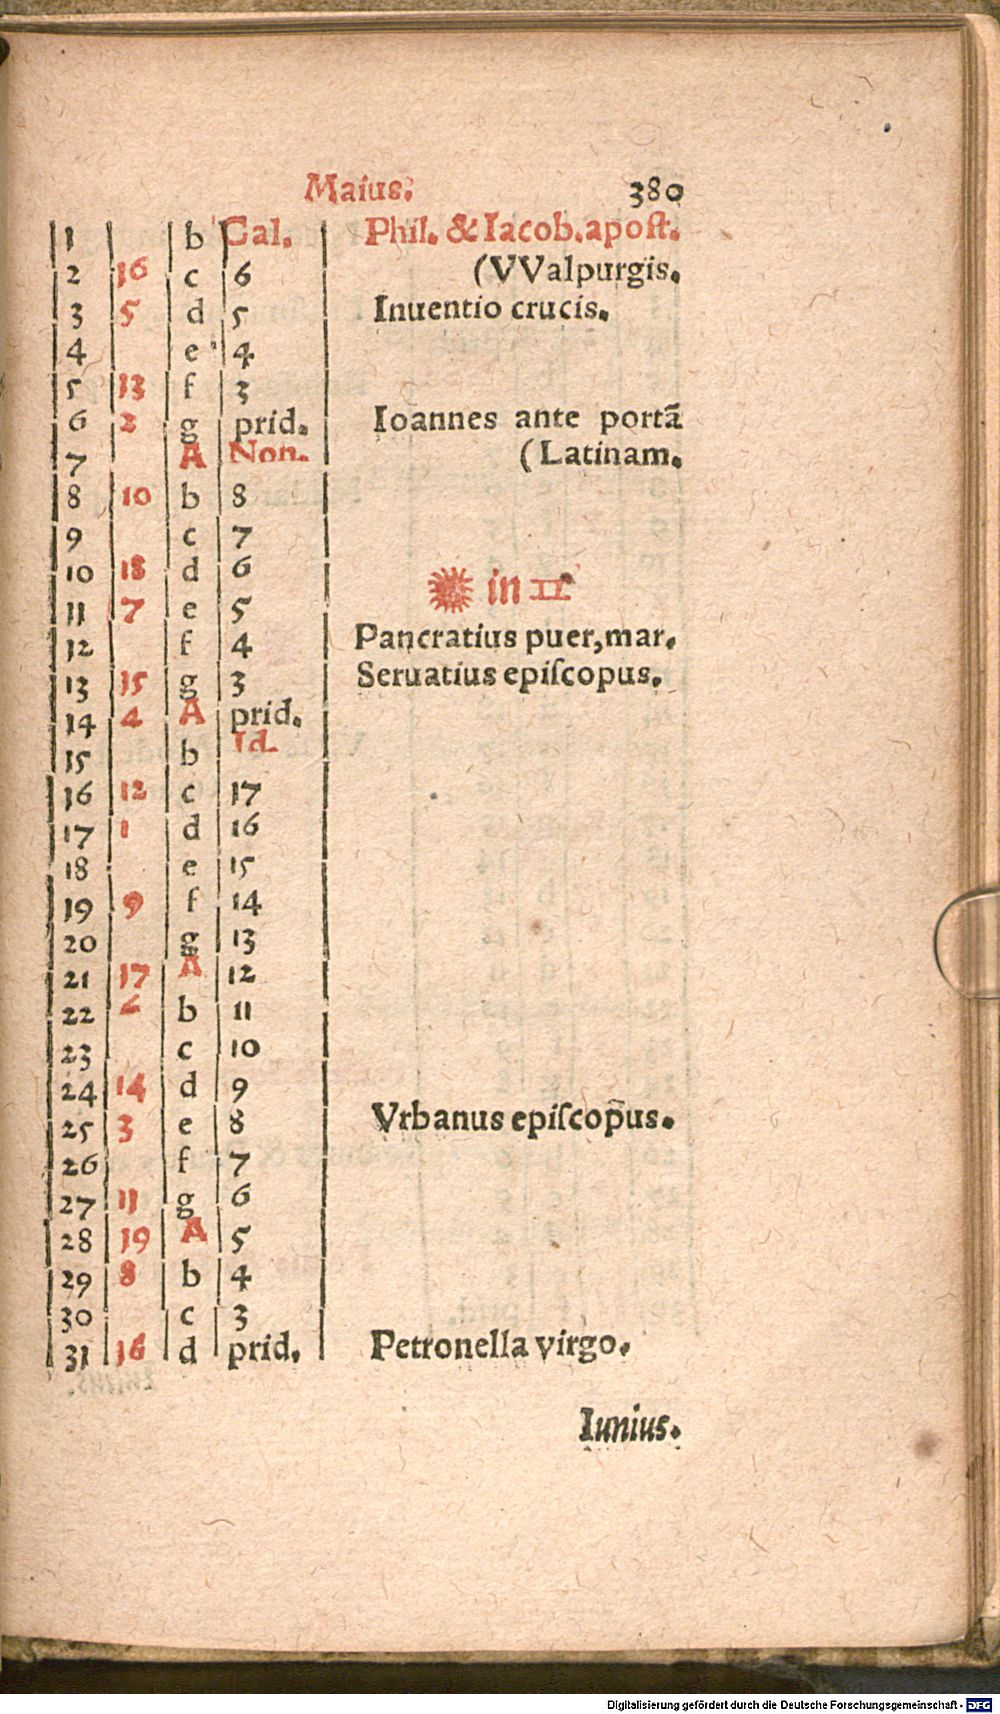 Maius. 380
1 b Cal. Phil. & Iacob. apoſt.
2 16 c 6 (VValpurgis.
3 5 d 5 Inuentio crucis.
4 e 4
5 13 f 3
6 2 g prid. Ioannes ante portã
7 A Non. (Latinam.
8 10 b 8
9 c 7
10 18 d 6
in II
11 7 e 5
12 f 4 Pancratius puer, mar.
13 15 g 3 Seruatius epiſcopus.
14 4 A prid.
15 b Id.
16 12 c 17
17 1 d 16
18 e 15
19 9 f 14
20 g 13
21 17 A 12
22 6 b 11
23 c 10
24 14 d 9
25 3 e 8 Vrbanus epiſcopus.
26 f 7
27 11 g 6
28 19 A 5
29 8 b 4
30 c 3
31 16 d prid. Petronella virgo.
Iunius.
Digitalisierung gefördert durch die Deutsche Forschungsgemeinschaft - DFG